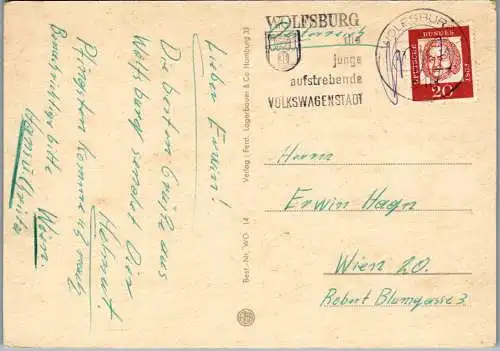 Lieber Erwin!
Die besten Grüße aus
Wolfsburg sendet Dir
Helmut.
Pfingsten komme ich nach
Wien.
Hamsti Grütz
Verlag: Ferd. Lagerbauer & Co Hamburg 33
Best.-Nr. WO 14
WOLFSBURG
die
junge
aufstrebende
VOLKSWAGENSTADT
WOLFSBURG
DEUTSCHE
BUNDESPOST
20
Herrn
Erwin Hagn
Wien 20.
Robert Blumgasse 3